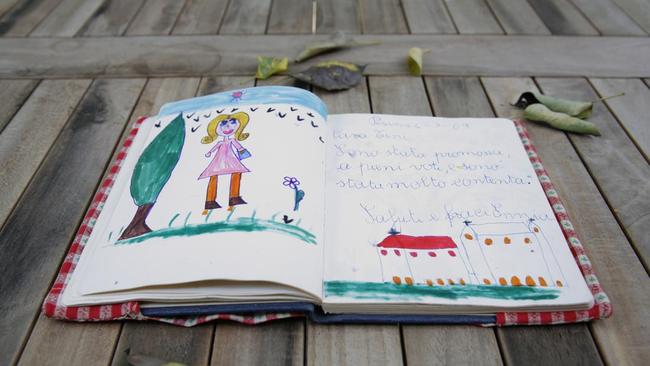 cara Tini.
Sono stata promossa,
a pieni voti e sono
stata molto contenta.
Saluti e baci